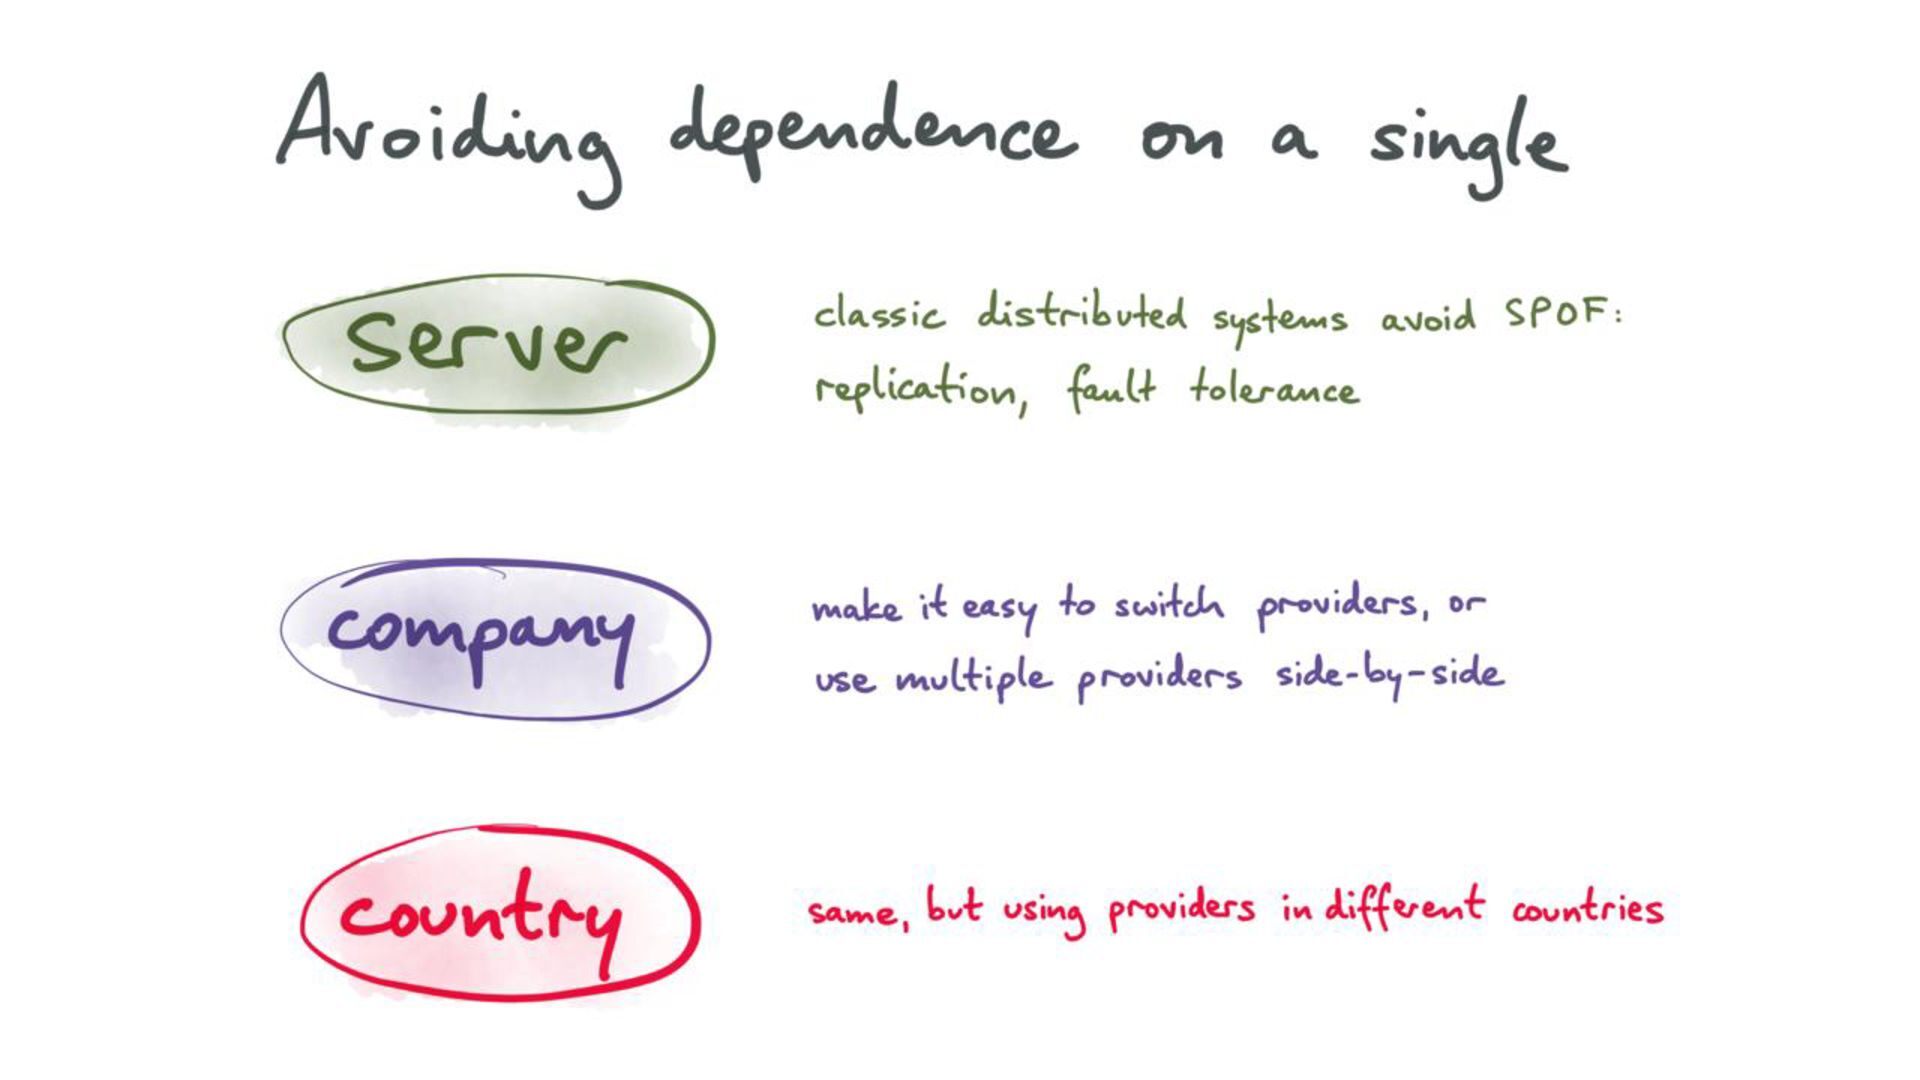 Avoiding dependence on a single
server
classic distributed systems avoid SPOF:
replication, fault tolerance
company
make it easy to switch providers, or
use multiple providers side-by-side
country
same, but using providers in different countries